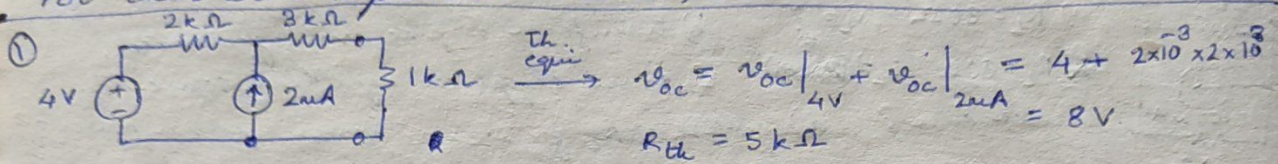 ① 2kΩ 3kΩ
4V + - 2mA 1kΩ Th. equi → v_oc = v_oc|_4V + v_oc|_2mA = 4 + 2×10^-3 ×2×10^3
= 8V
R_th = 5kΩ